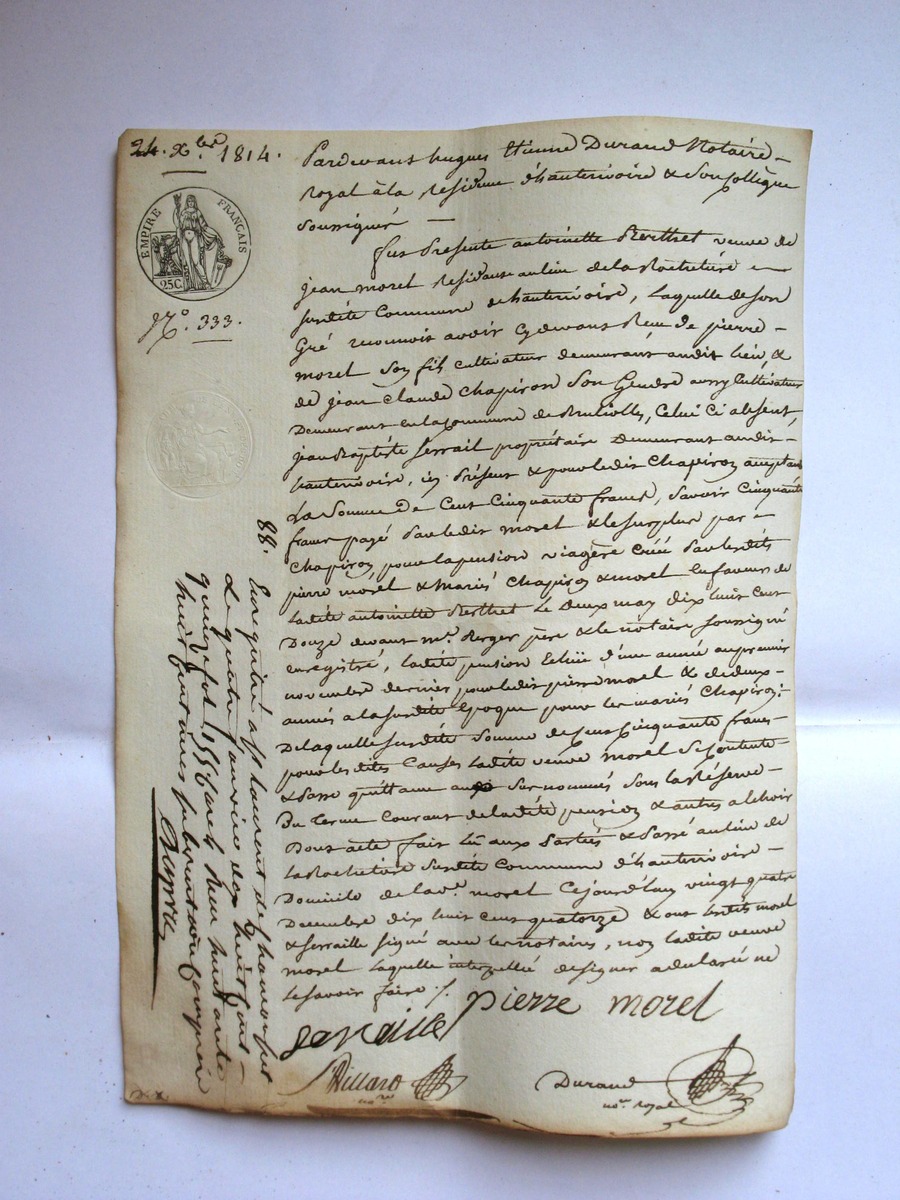 24. Xbre 1814.
EMPIRE FRANÇAIS
25C.
N.° 333.
Pardevant hugues Etienne Durand Notaire
Royal à la Residence d'hauterivoire & Son Collègue
Soussignés
fut Presente antoinette Berthet veuve de
jean morel Residante au lieu de la Rochetiére
Susdite Commune d'hauterivoire, laquelle de Son
Gré reconnoit avoir Cy devant Reçu de pierre
morel Son fils Cultivateur demeurant audit lieu, &
de jean Claude Chapiron Son Gendre aussy Cultivateur
Demeurant en la Commune de Brullolle, Celui Ci absent,
jean Baptiste Serrail propriétaire Demeurant audit
hauterivoire, ici Présent & pour ledit Chapiron acceptant
La Somme De Cent Cinquante francs, Savoir Cinquante
francs payé Par ledit morel & le surplus par
Chapiron, pour la pension viagère Créé Par lesdits
pierre morel & mariés Chapiron & morel En faveur de
Ladite antoinette Berthet Le deux may dix huit Cent
Douze devant m.e Berger père & le notaire Soussigné
enregistré, ladite pension Echue d'une année au premier
novembre dernier, pour ledit pierre morel & de deux
années a la Susdite Epoque pour les mariés Chapiron:
De laquelle Susdite Somme de Cent Cinquante francs
pour lesdites Causes Ladite veuve morel Se Contente
& Passe quittance aux Sus nommés Sous la Réserve
Du terme Courant de ladite pension & autres a Echoir
Dont acte fait Lû aux Parties & Passé au lieu de
La Rochetiére Susdite Commune d'hauterivoire
Domicile de la v.e morel Cejourd'huy vingt quatre
Decembre dix huit Cent quatorze & ont lesdits morel
& Serraille Signé avec les notaires, non ladite veuve
morel laquelle interpellée de signer a declaré ne
Le Savoir faire ./.
Serraille pierre morel
Durand
no.re royal
88.
Enregistré a St Laurent de Chamousset
Le quatre janvier dix huit cent
quinze fol. 155 Reçu